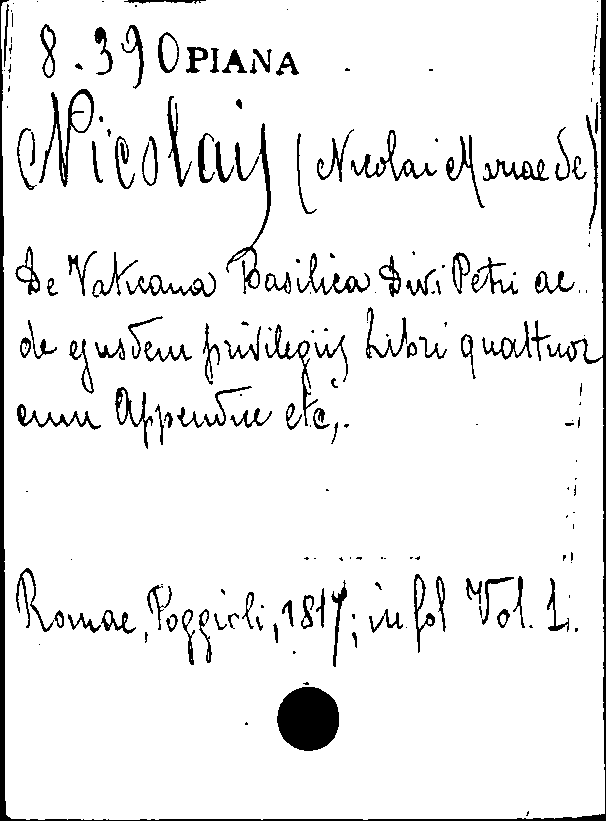 8.390 PIANA
Nicolaij (Nicolai Mariae de)
De Vaticana Basilica Divi Petri ac
de ejusdem privilegiis Libri quattuor
cum Appendice etc,.
Romae, Poggioli, 1817; in fol Vol. 1.